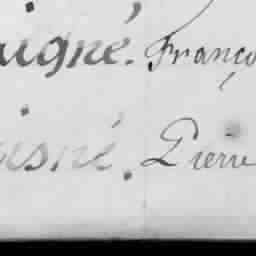 aigné. Franço
isné. Pierre